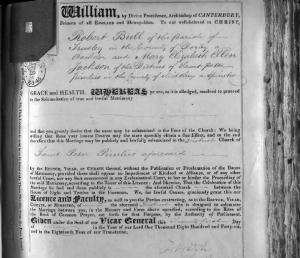 William, by Divine Providence, Archbishop of CANTERBURY,
Primate of all ENGLAND and Metropolitan. To our wellbeloved in CHRIST,
Robert Bull of the parish of
in the County of Derby
Bachelor and Mary Elizabeth Ellen
Jackson of the District of Saint Peter
Pimlico in the County of Middlesex a Spinster
GRACE and HEALTH. WHEREAS ye are, as it is alledged, resolved to proceed
to the Solemnization of true and lawful Matrimony
and that you greatly desire that the same may be solemnized in the Face of the Church: We being
willing that these your honest Desires may the more speedily obtain a due Effect, and to the end
therefore that this Marriage may be publicly and lawfully solemnized in the District Church of
Saint Peter Pimlico aforesaid
by the RECTOR, VICAR, or CURATE thereof, without the Publication or Proclamation of the Banns
of Matrimony, provided there shall appear no Impediment of Kindred or Alliance, or of any other
lawful Cause, nor any Suit commenced in any Ecclesiastical Court, to bar or hinder the Proceeding of
the said Matrimony, according to the Tenor of this Licence: And likewise, That the Celebration of this
Marriage be had and done publicly in the aforesaid Church between the
Hours of Eight and Twelve in the Forenoon. We, for lawful Causes, graciously grant this our
Licence and Faculty, as well to you the Parties contracting, as to the RECTOR, VICAR,
CURATE, or MINISTER, of the aforesaid who is designed to solemnize
the Marriage between you, in the Manner and Form above specified, according to the Rites of
the Book of Common Prayer, set forth for that Purpose, by the Authority of Parliament.
Given under the Seal of our Vicar General this Day
of in the Year of our Lord One Thousand Eight Hundred and Forty
and in the Eighteenth Year of our Translation.